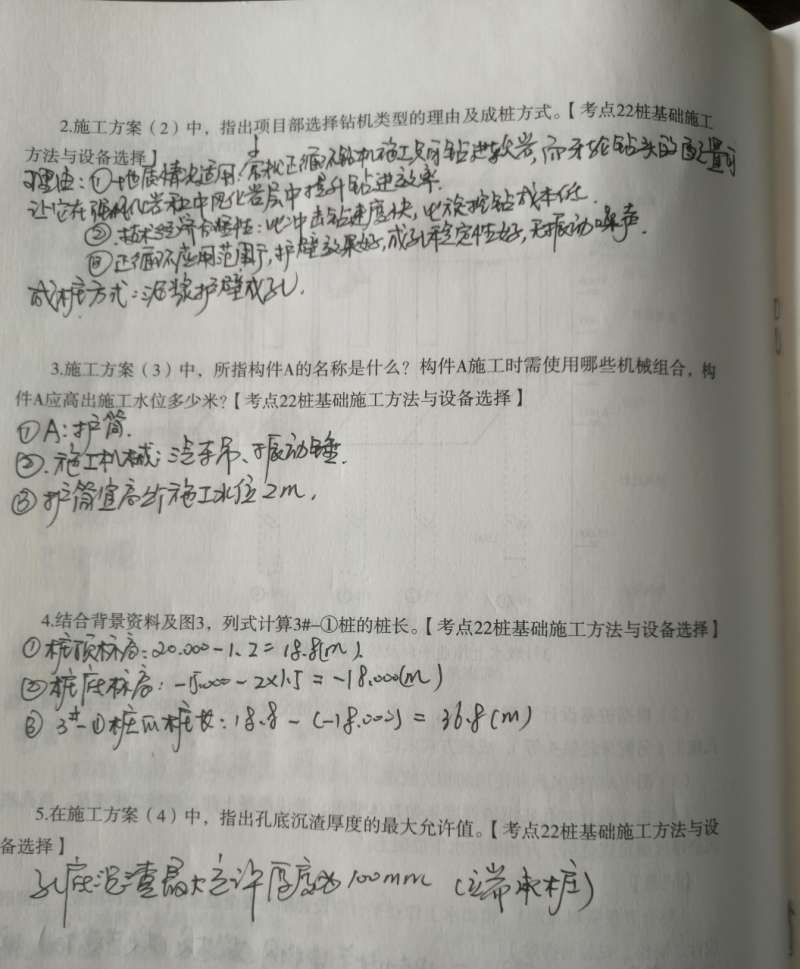 2.施工方案（2）中，指出项目部选择钻机类型的理由及成桩方式。【考点22桩基础施工
方法与设备选择】
理由：①地质情况适用：正循环钻机施工只可钻进软岩，而牙轮钻头的配置可
让它在强风化岩和中风化岩层中提升钻进效率.
②技术经济合理性：比冲击钻速度快，比旋挖钻成本低.
③正循环应用范围广，护壁效果好，成孔稳定性好，无振动噪声.
成桩方式：泥浆护壁成孔.
3.施工方案（3）中，所指构件A的名称是什么？构件A施工时需使用哪些机械组合，构
件A应高出施工水位多少米？【考点22桩基础施工方法与设备选择】
①A：护筒.
②.施工机械：汽车吊、振动锤.
③护筒宜高于施工水位2m.
4.结合背景资料及图3，列式计算3#-①桩的桩长。【考点22桩基础施工方法与设备选择】
①桩顶标高：20.000-1.2=18.8(m).
②桩底标高：-15.000-2×1.5=-18.000(m)
③3#-①桩的桩长：18.8-(-18.000)=36.8(m)
5.在施工方案（4）中，指出孔底沉渣厚度的最大允许值。【考点22桩基础施工方法与设
备选择】
孔底沉渣最大允许厚度为100mm（端承桩）